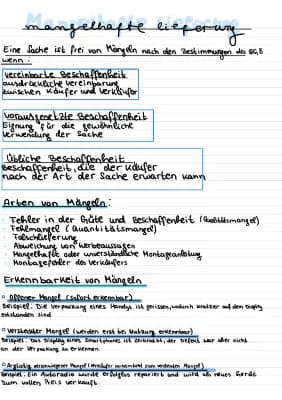 mangelhafte Lieferung
Eine Sache ist frei von Mängeln nach den Bestimmungen des BGB,
wenn:
vereinbarte Beschaffenheit
ausdrückliche Vereinbarung
zwischen Käufer und Verkäufer
Vorausgesetzte Beschaffenheit
Eignung für die gewöhnliche
Verwendung der Sache
Übliche Beschaffenheit
Beschaffenheit, die der Käufer
nach der Art der Sache erwarten kann
Arten von Mängeln:
Fehler in der Güte und Beschaffenheit (Qualitätsmangel)
Fehlmangel (Quantitätsmangel)
Falschlieferung
Abweichung von Werbeaussagen
Mangelhafte oder unverständliche Montageanleitung
Montagefehler des Verkäufers
Erkennbarkeit von Mängeln
Offener Mangel (sofort erkennbar)
Beispiel: Die Verpackung eines Handys ist gerissen, wodurch Kratzer auf dem Display
entstanden sind
Versteckter Mangel (werden erst bei Nutzung erkennbar)
Beispiel: Das Display eines Smartphones ist zerkratzt, der Defekt war aber nicht
an der Verpackung zu erkennen.
Arglistig verschwiegener Mangel
Beispiel: Ein Autoradio wurde erfolglos repariert und wird als neues Gerät
zum vollen Preis verkauft.